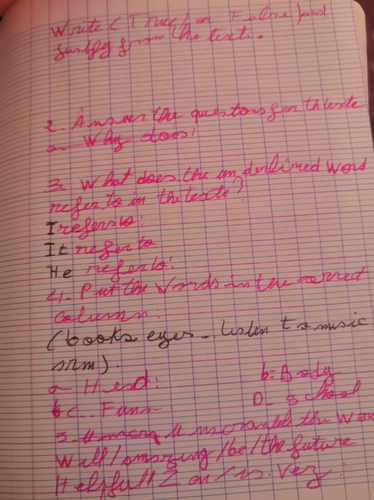 Write (True) or False) and
justfy from the texte.
2. Answer the questons from the texte
a - Why does!
3. What does the underlined word
refer to in the texte?
I refers to:
It refer to
He refer to:
4. Put the words in the correct
column:
(books eyes - listen to music
arm).
a - Head: b: Body
c - Fun D. School
5. the Wor
Will / amazing / be / the future
/ is. very